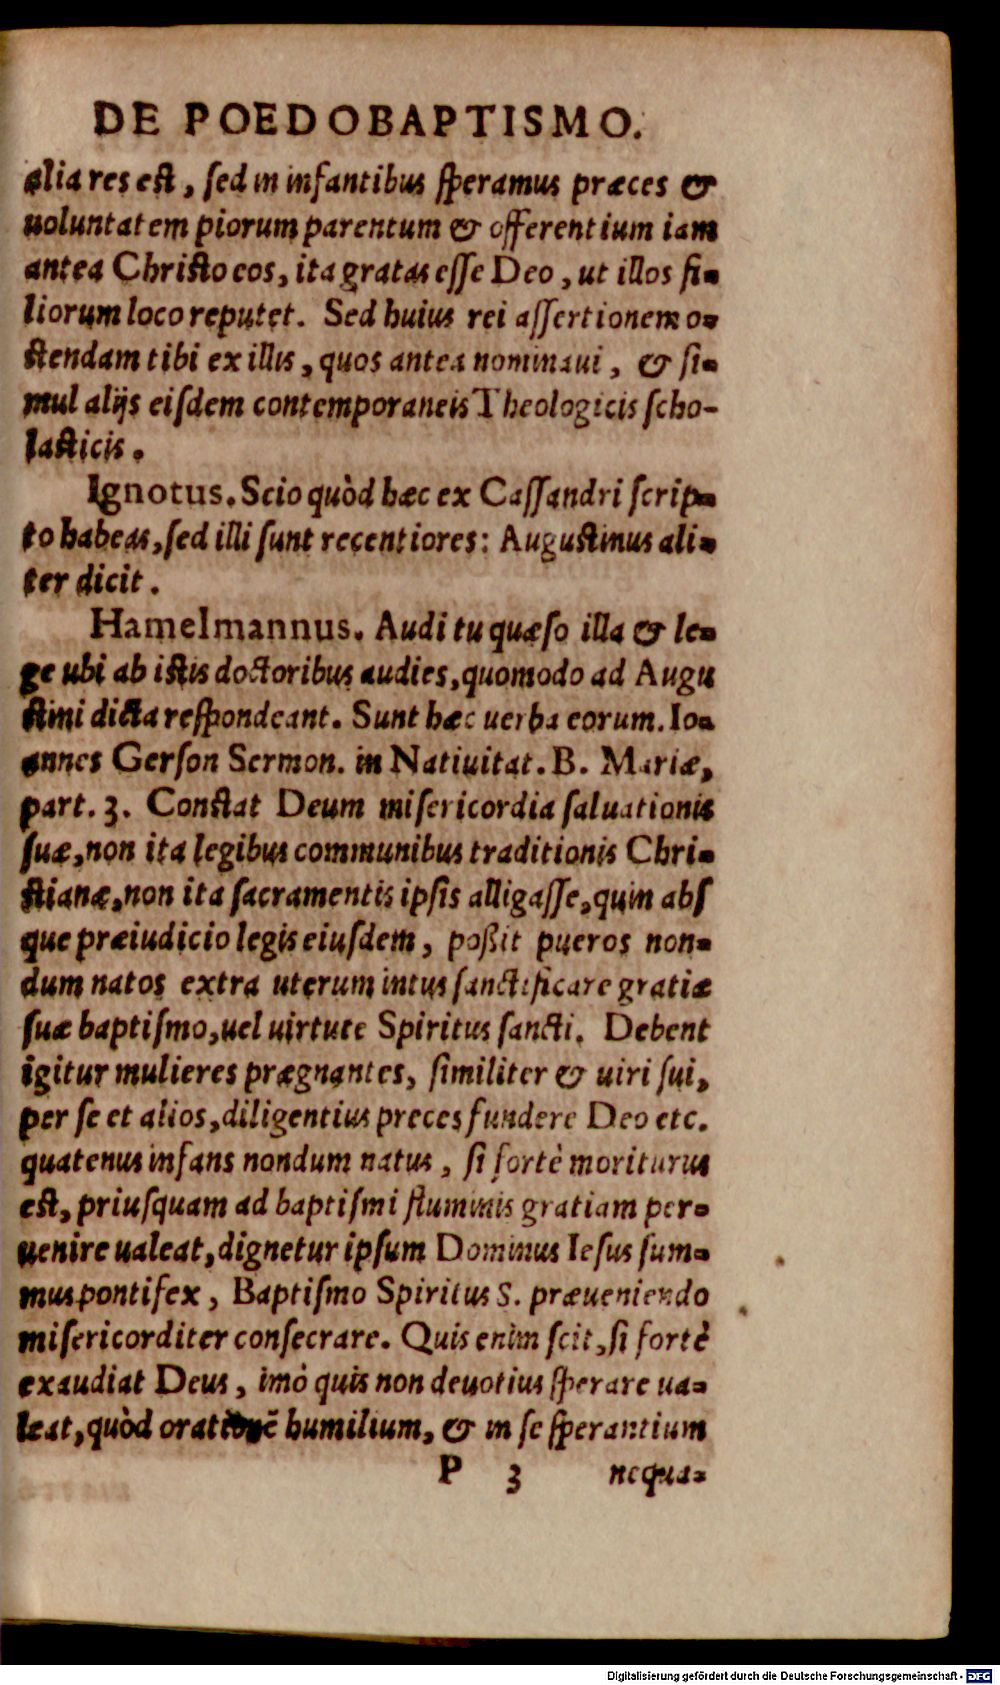 DE POEDOBAPTISMO.
alia res est, sed in infantibus speramus præces &
uoluntatem piorum parentum & offerentium iam
antea Christo eos, ita gratas esse Deo, ut illos fi-
liorum loco reputet. Sed huius rei assertionem o-
stendam tibi ex illis, quos antea nominaui, & si-
mul alijs eisdem contemporaneis Theologicis scho-
lasticis.
Ignotus. Scio quòd hæc ex Cassandri scrip-
to habeas, sed illi sunt recentiores: Augustinus ali-
ter dicit.
Hamelmannus. Audi tu quæso illa & le-
ge ubi ab istis doctoribus audies, quomodo ad Augu
stini dicta respondeant. Sunt hæc uerba eorum. Io-
annes Gerson Sermon. in Natiuitat. B. Mariæ,
part. 3. Constat Deum misericordia saluationis
suæ, non ita legibus communibus traditionis Chri-
stianæ, non ita sacramentis ipsis alligasse, quin abs
que præiudicio legis eiusdem, poßit pueros non-
dum natos extra uterum intus sanctificare gratiæ
suæ baptismo, uel uirtute Spiritus sancti. Debent
igitur mulieres prægnantes, similiter & uiri sui,
per se et alios, diligentius preces fundere Deo etc.
quatenus infans nondum natus, si fortè moriturus
est, priusquam ad baptismi fluminis gratiam per-
uenire ualeat, dignetur ipsum Dominus Iesus sum-
mus pontifex, Baptismo Spiritus S. præueniendo
misericorditer consecrare. Quis enim scit, si fortè
exaudiat Deus, imò quis non deuotius sperare ua-
leat, quòd orationē humilium, & in se sperantium
P 3 nequa-
Digitalisierung gefördert durch die Deutsche Forschungsgemeinschaft - DFG